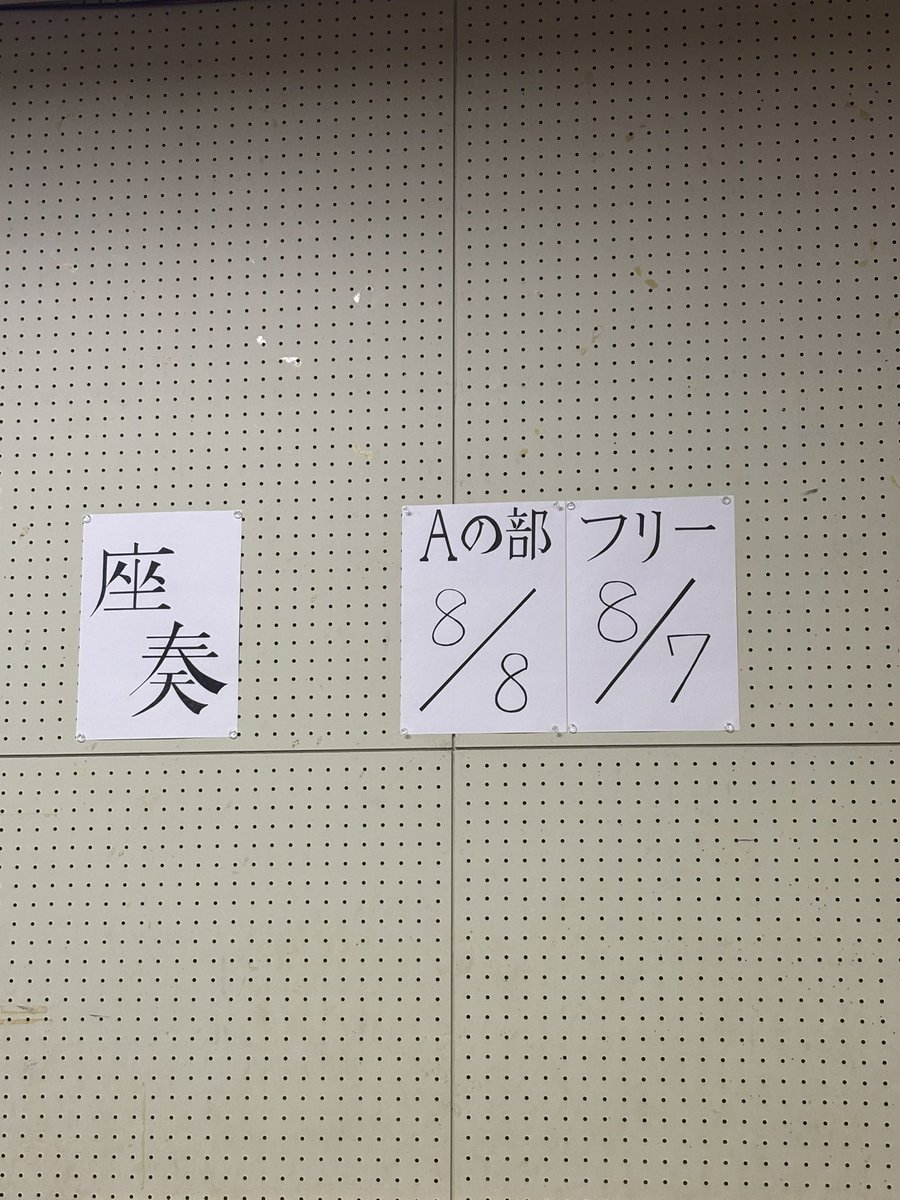 座
奏
Aの部
8/8
フリー
8/7